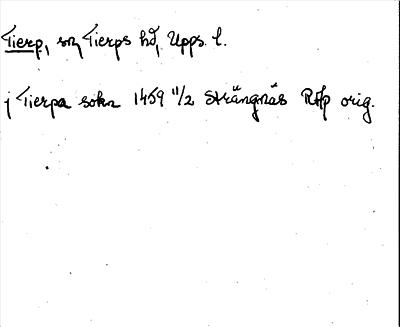 Tierp, sn, Tierps hd, Upps. l.
j Tierpa sokn 1459 11/2 Strängnäs RAp orig.